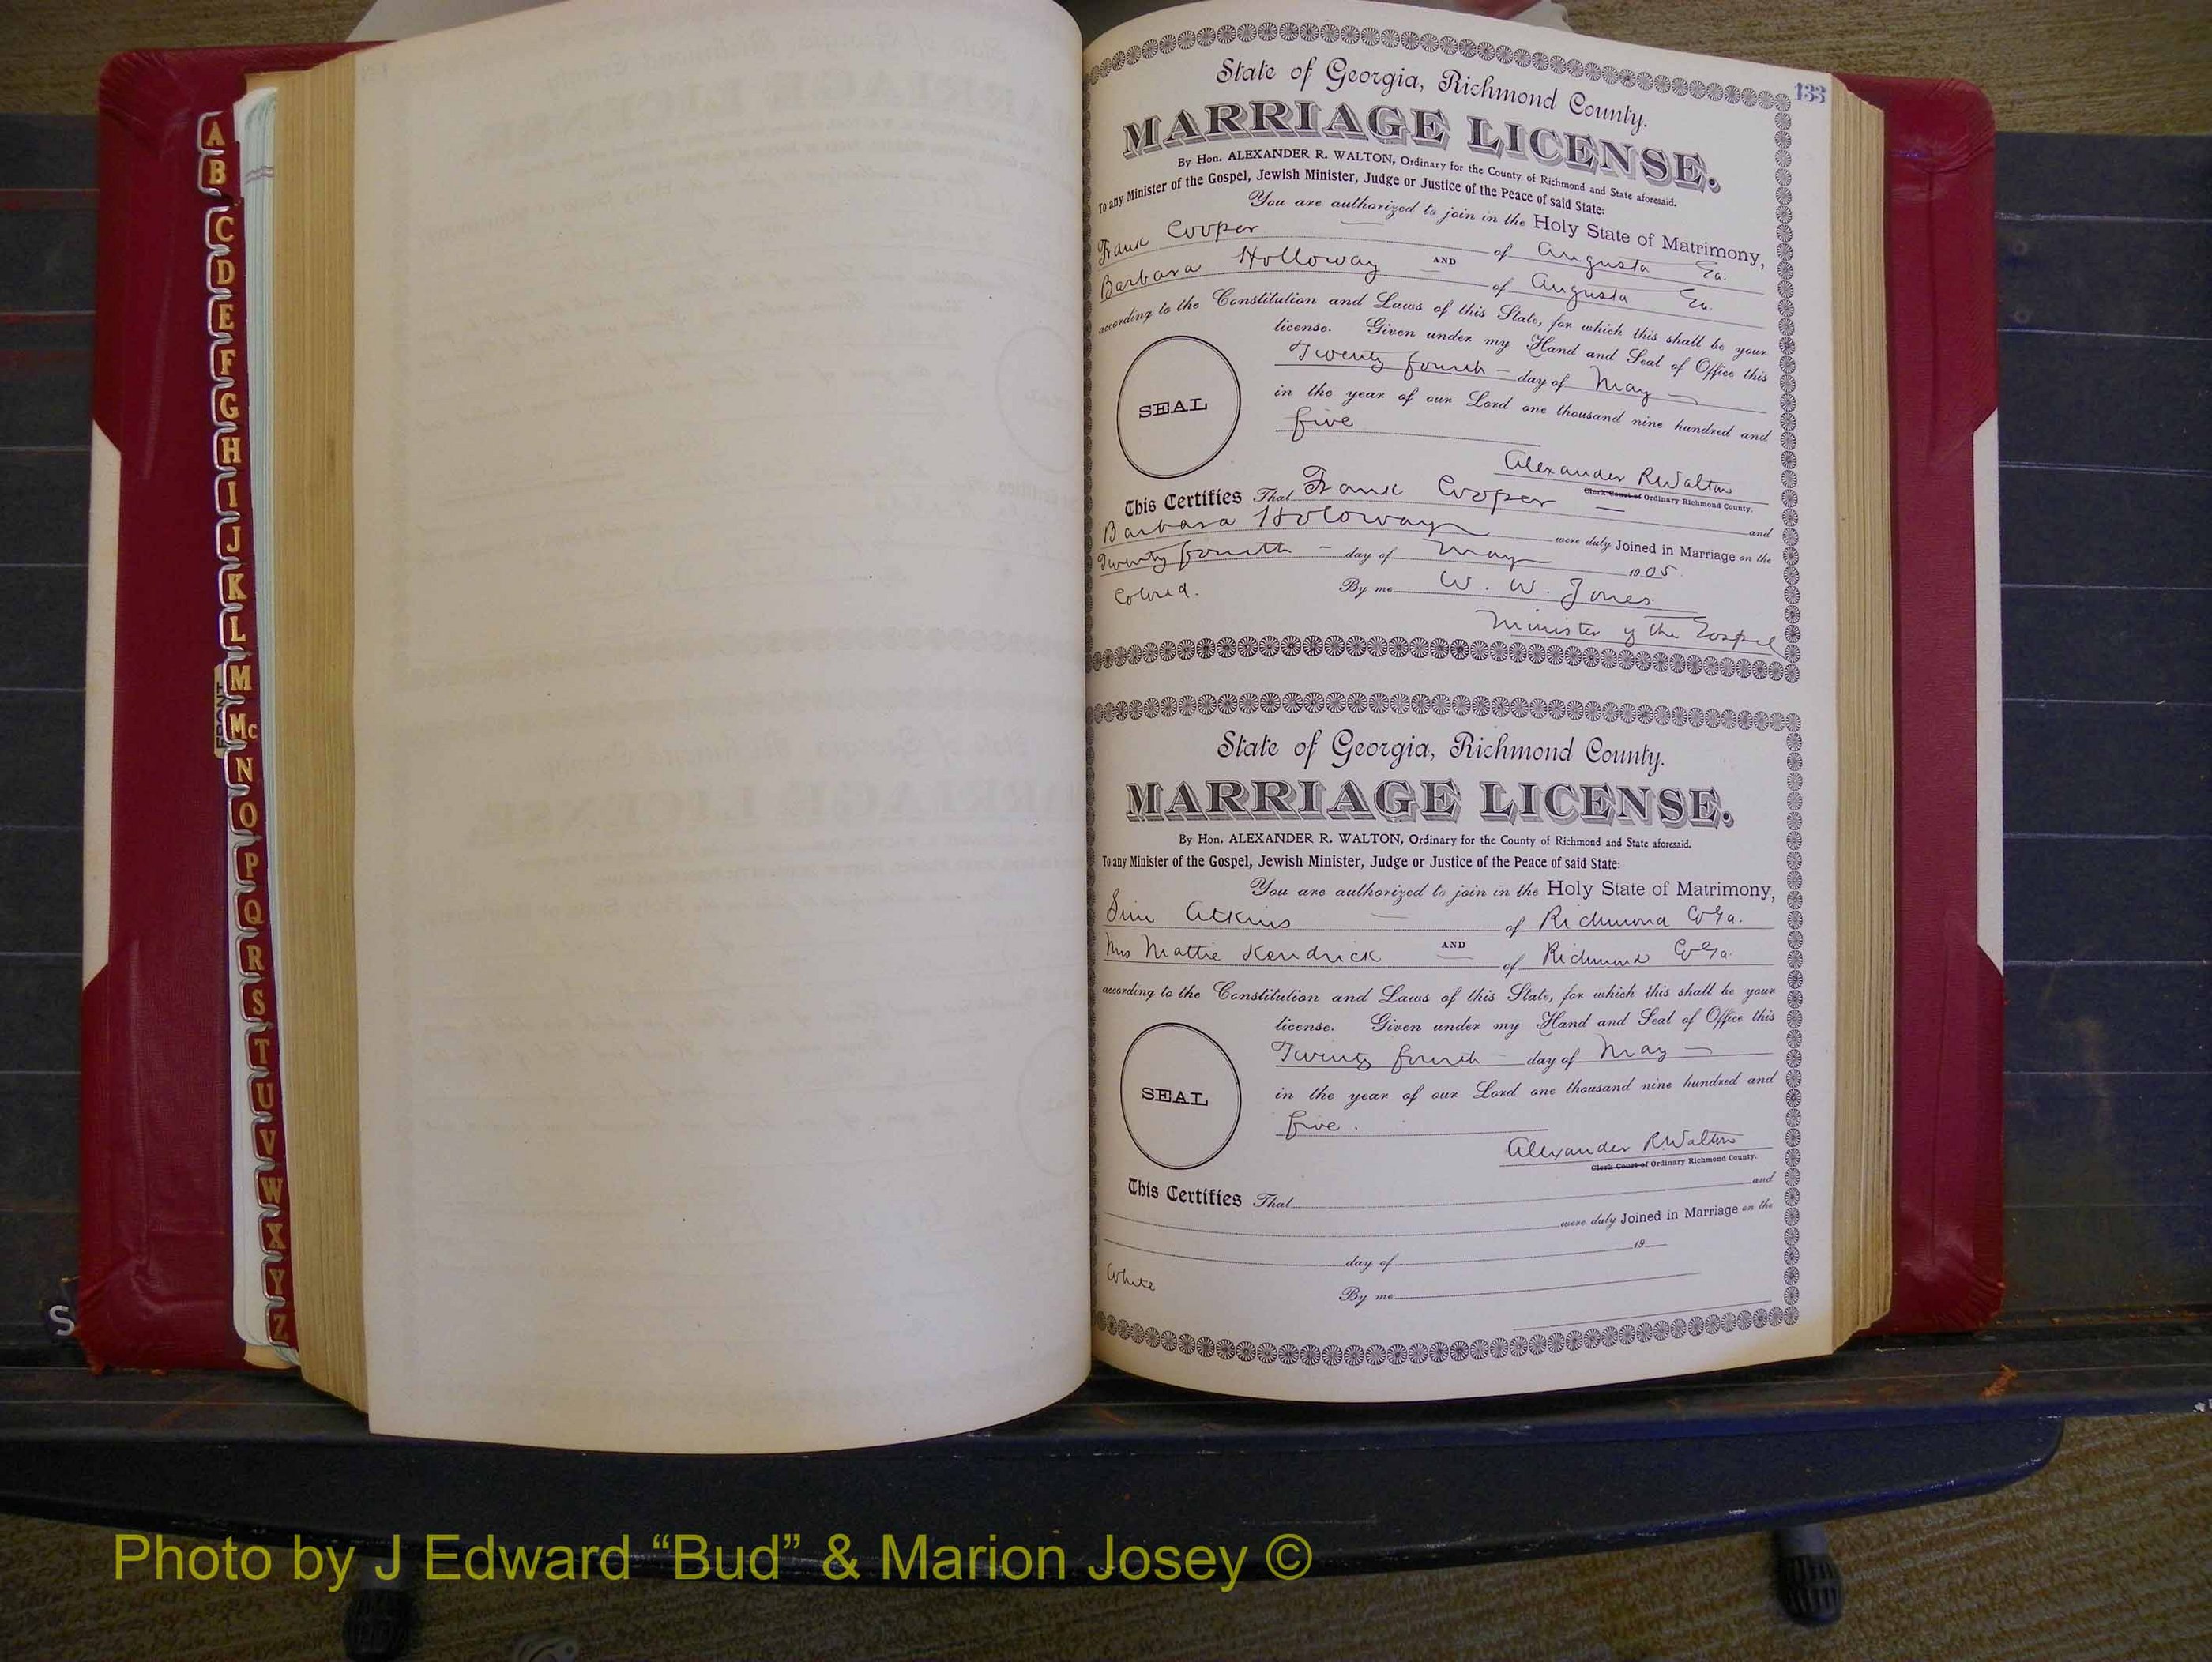 A
B
C
D
E
F
G
H
I
J
K
L
M
Mc
N
O
P
Q
R
S
T
U
V
W
X
Y
Z
133
State of Georgia, Richmond County.
MARRIAGE LICENSE.
By Hon. ALEXANDER R. WALTON, Ordinary for the County of Richmond and State aforesaid.
To any Minister of the Gospel, Jewish Minister, Judge or Justice of the Peace of said State:
You are authorized to join in the Holy State of Matrimony,
Frank Cooper of Augusta Ga.
AND
Barbara Holloway of Augusta Ga.
according to the Constitution and Laws of this State, for which this shall be your
license. Given under my Hand and Seal of Office this
Twenty fourth - day of May
in the year of our Lord one thousand nine hundred and
five
SEAL
Alexander R Walton
Clerk Court of Ordinary Richmond County.
This Certifies That Frank Cooper and
Barbara Holoway were duly Joined in Marriage on the
Twenty fourth - day of May 1905.
Colored. By me W. W. Jones
Minister of the Gospel
State of Georgia, Richmond County.
MARRIAGE LICENSE.
By Hon. ALEXANDER R. WALTON, Ordinary for the County of Richmond and State aforesaid.
To any Minister of the Gospel, Jewish Minister, Judge or Justice of the Peace of said State:
You are authorized to join in the Holy State of Matrimony,
Atkins of Richmond Co Ga.
AND
Mrs Mattie Kendrick of Richmond Co Ga.
according to the Constitution and Laws of this State, for which this shall be your
license. Given under my Hand and Seal of Office this
Twenty fourth - day of May
in the year of our Lord one thousand nine hundred and
five.
SEAL
Alexander R. Walton
Clerk Court of Ordinary Richmond County.
This Certifies That and
were duly Joined in Marriage on the
day of 19
White By me
Photo by J Edward “Bud” & Marion Josey ©